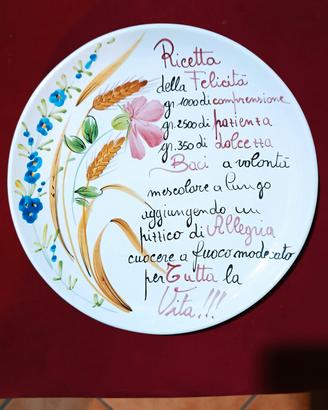 Ricetta
della Felicità
gr. 1000 di comprensione
gr. 2500 di pazienza
gr. 350 di dolcezza
Baci a volontà
mescolare a lungo
aggiungendo un
pizzico di Allegria
cuocere a fuoco moderato
per Tutta la
Vita!!!